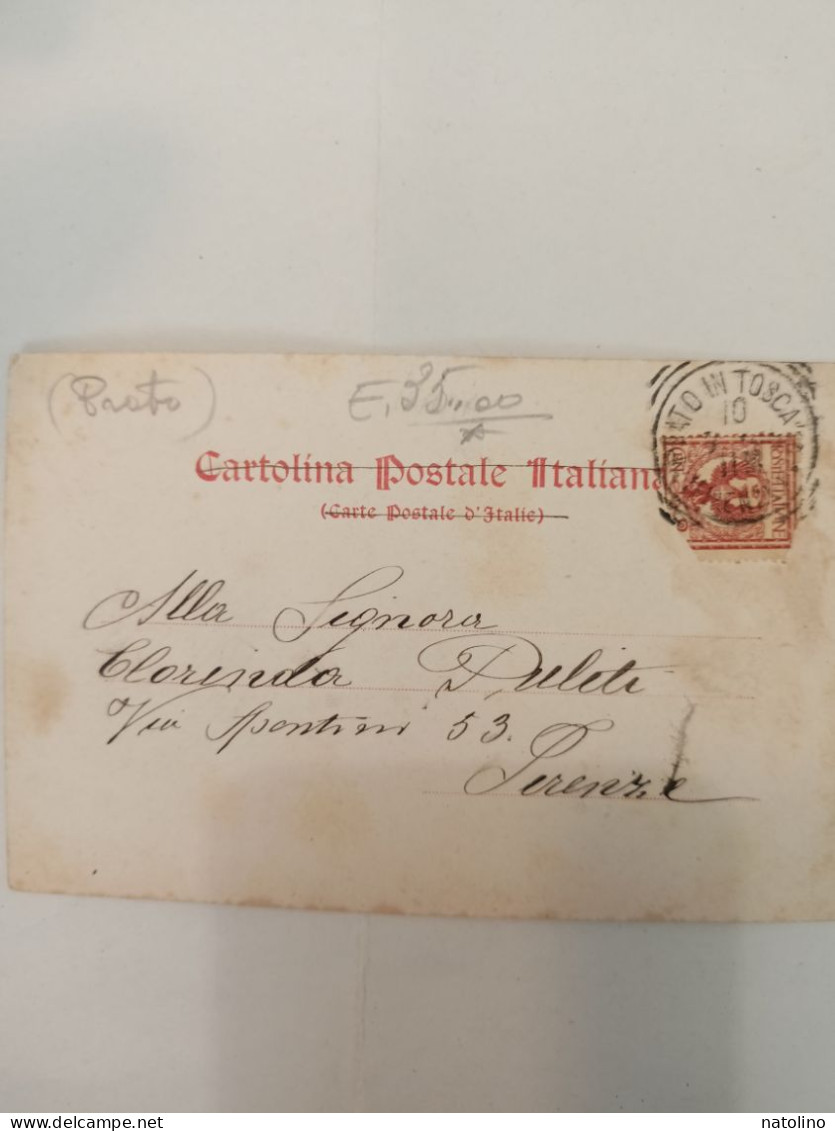 (Prato)
E. 35.00
ATO IN TOSCA
10
Cartolina Postale Italiana
(Carte Postale d'Italie)
Alla Signora
Clorinda Puliti
Via Spontini 53.
Firenze
natolino